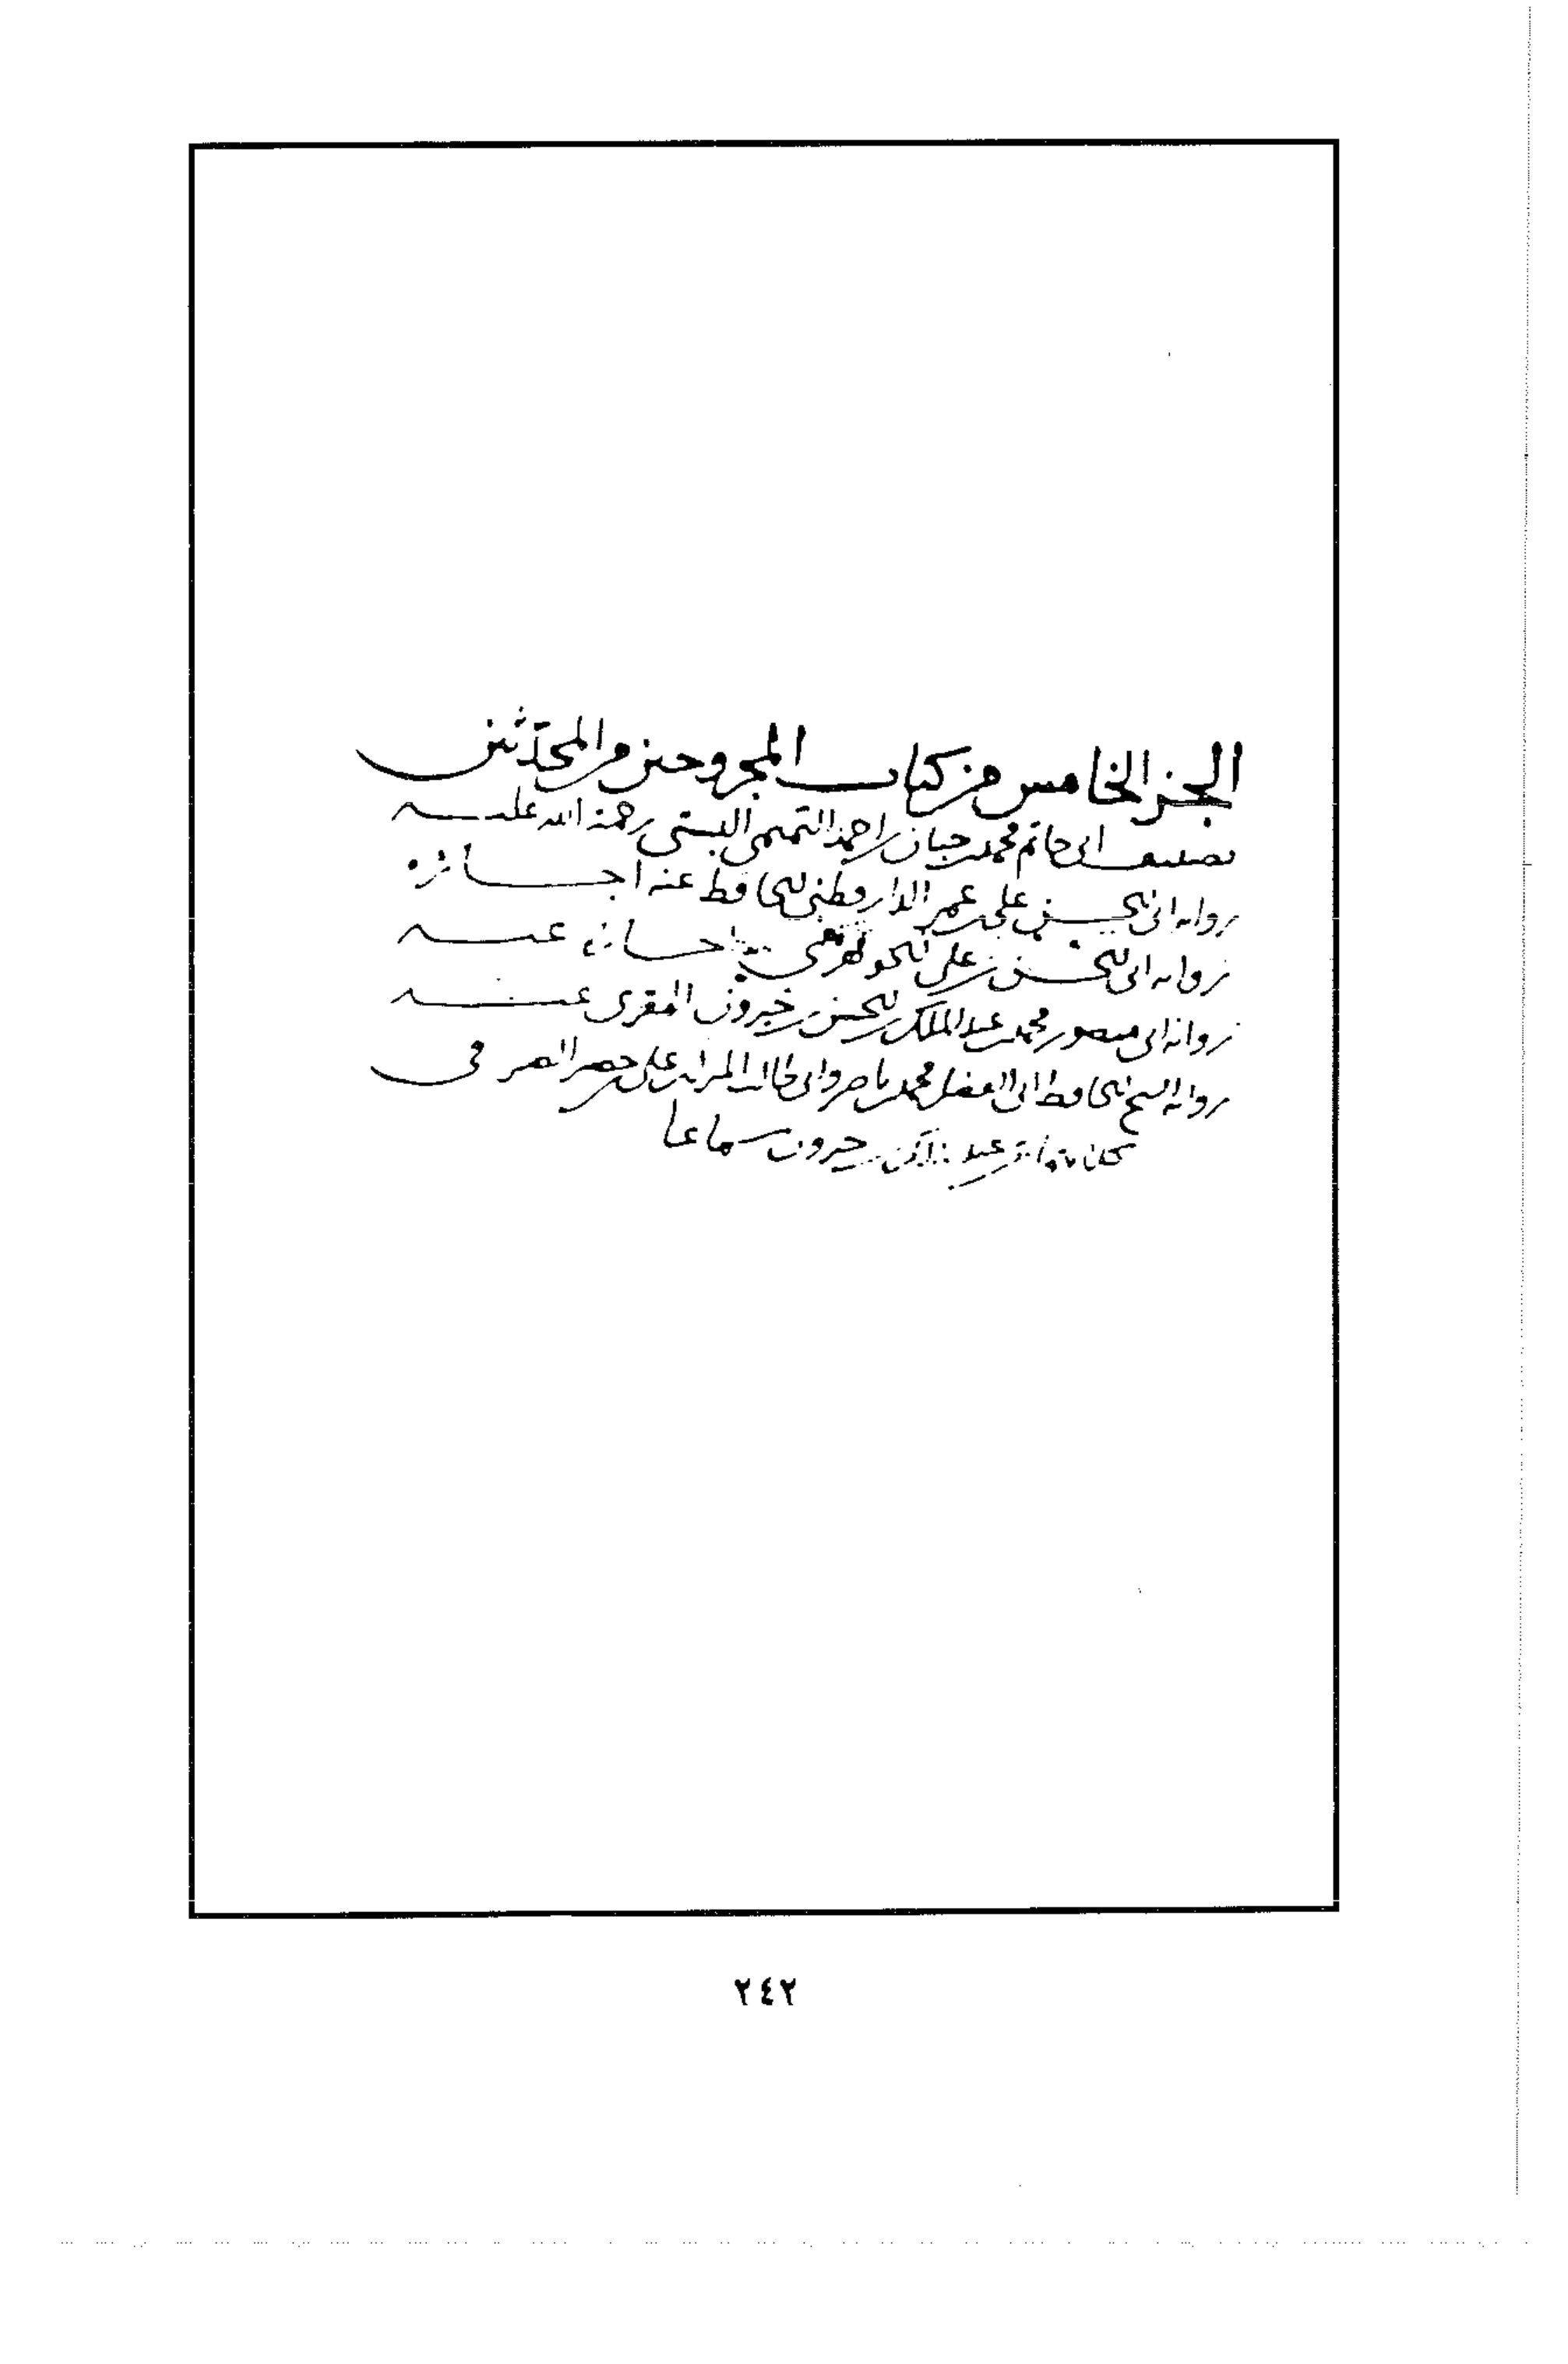 الجز الخامس من كتاب المجروحين من المحدثين
تصنيف ابي حاتم محمد بن حبان بن احمد التميمي البستي رحمة الله عليه
رواية ابي الحسن علي بن عمر الدارقطني الحافظ عنه اجازة
رواية ابي الحسن بن علي الجوهري عنه
رواية ابي منصور محمد بن عبد الملك بن الحسن بن خيرون المقرى عنه
رواية الشيخ الحافظ ابي الفضل محمد بن ناصر وابي طالب المبارك بن علي بن خضير الصيرفي
بن خيرون سماعا
٢٤٢